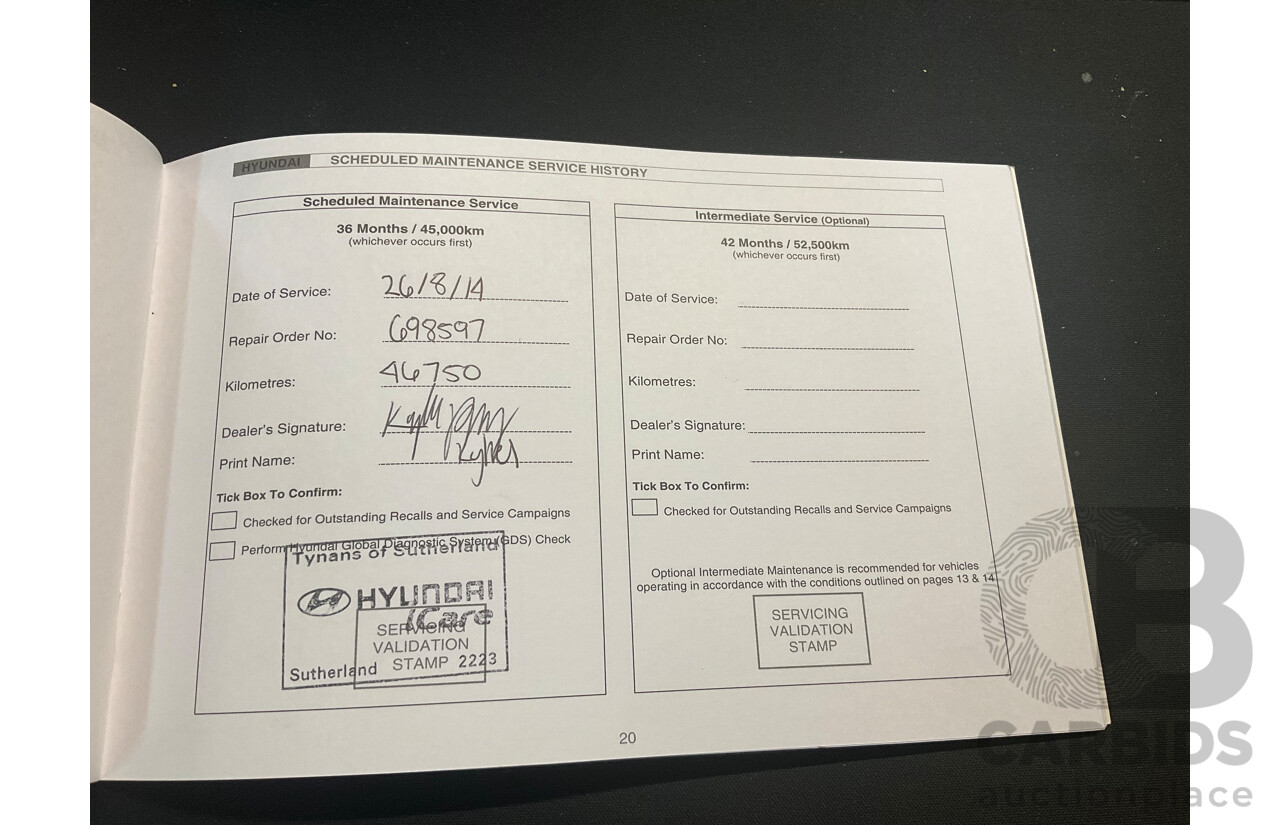 HYUNDAI SCHEDULED MAINTENANCE SERVICE HISTORY
Scheduled Maintenance Service
36 Months / 45,000km
(whichever occurs first)
Date of Service: 26/8/14
Repair Order No: 698597
Kilometres: 46750
Dealer's Signature:
Print Name:
Tick Box To Confirm:
Checked for Outstanding Recalls and Service Campaigns
Perform Hyundai Global Diagnostic System (GDS) Check
Tynans of Sutherland
HYUNDAI
iCare
SERVICING
VALIDATION
STAMP
Sutherland 2223
Intermediate Service (Optional)
42 Months / 52,500km
(whichever occurs first)
Date of Service:
Repair Order No:
Kilometres:
Dealer's Signature:
Print Name:
Tick Box To Confirm:
Checked for Outstanding Recalls and Service Campaigns
Optional Intermediate Maintenance is recommended for vehicles
operating in accordance with the conditions outlined on pages 13 & 14
SERVICING
VALIDATION
STAMP
20
CB
CARBIDS
auctionplace